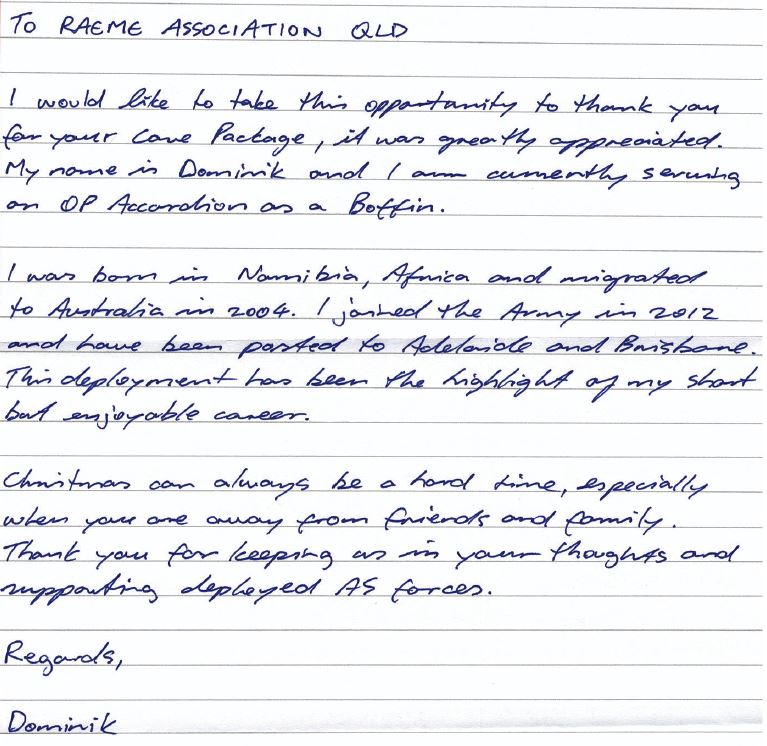 To RAEME ASSOCIATION QLD
I would like to take this opportunity to thank you
for your Care Package, it was greatly appreciated.
My name is Dominik and I am currently serving
on OP Accordion as a Boffin.
I was born in Namibia, Africa and migrated
to Australia in 2004. I joined the Army in 2012
and have been posted to Adelaide and Brisbane.
This deployment has been the highlight of my short
but enjoyable career.
Christmas can always be a hard time, especially
when you are away from friends and family.
Thank you for keeping us in your thoughts and
supporting deployed AS forces.
Regards,
Dominik